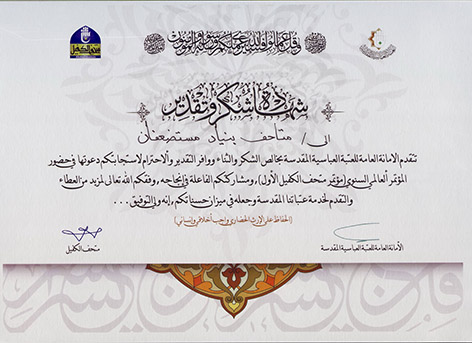 وقل اعملوا فسيرى الله عملكم ورسوله والمؤمنون
شهادة شكر وتقدير
الى/ متاحف بنياد مستضعفان
تتقدم الامانة العامة للعتبة العباسية المقدسة بخالص الشكر والثناء ووافر التقدير والاحترام لاستجابتكم دعوتها في حضور
المؤتمر العالمي السنوي (مؤتمر متحف الكفيل الأول)، ومشاركتكم الفاعلة في إنجاحه، وفقكم الله تعالى لمزيد من العطاء
والتقدم لخدمة عتباتنا المقدسة وجعله في ميزان حسناتكم، إنه ولي التوفيق...
(الحفاظ على الإرث الحضاري واجب أخلاقي وإنساني)
الأمانة العامة للعتبة العباسية المقدسة
متحف الكفيل